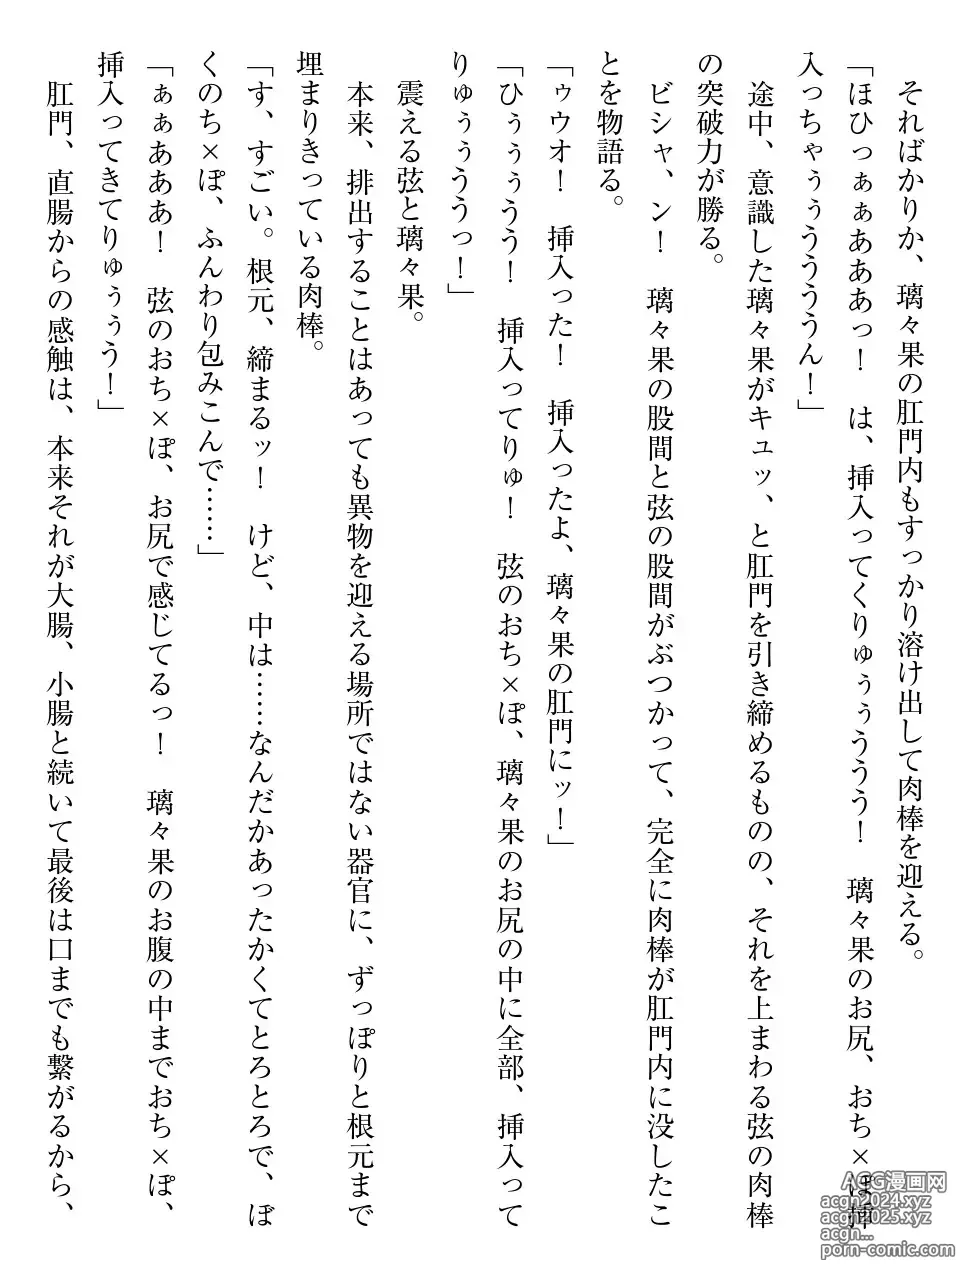 そればかりか、璃々果の肛門内もすっかり溶け出して肉棒を迎える。
「ほひっぁぁあああっ！　は、挿入ってくりゅぅぅううう！　璃々果のお尻、おち×ぽ挿
入っちゃぅぅうううん！」
途中、意識した璃々果がキュッ、と肛門を引き締めるものの、それを上まわる弦の肉棒
の突破力が勝る。
ビシャ、ン！　璃々果の股間と弦の股間がぶつかって、完全に肉棒が肛門内に没したこ
とを物語る。
「ゥウオ！　挿入った！　挿入ったよ、璃々果の肛門にッ！」
「ひぅぅぅうう！　挿入ってりゅ！　弦のおち×ぽ、璃々果のお尻の中に全部、挿入って
りゅぅぅううっ！」
震える弦と璃々果。
本来、排出することはあっても異物を迎える場所ではない器官に、ずっぽりと根元まで
埋まりきっている肉棒。
「す、すごい。根元、締まるッ！　けど、中は……なんだかあったかくてとろとろで、ぼ
くのち×ぽ、ふんわり包みこんで……」
「ぁぁあああ！　弦のおち×ぽ、お尻で感じてるっ！　璃々果のお腹の中までおち×ぽ、
挿入ってきてりゅぅぅう！」
肛門、直腸からの感触は、本来それが大腸、小腸と続いて最後は口までも繋がるから、
ACG漫画网
acgn2024.xyz
acgn2025.xyz
acgn...
porn-comic.com